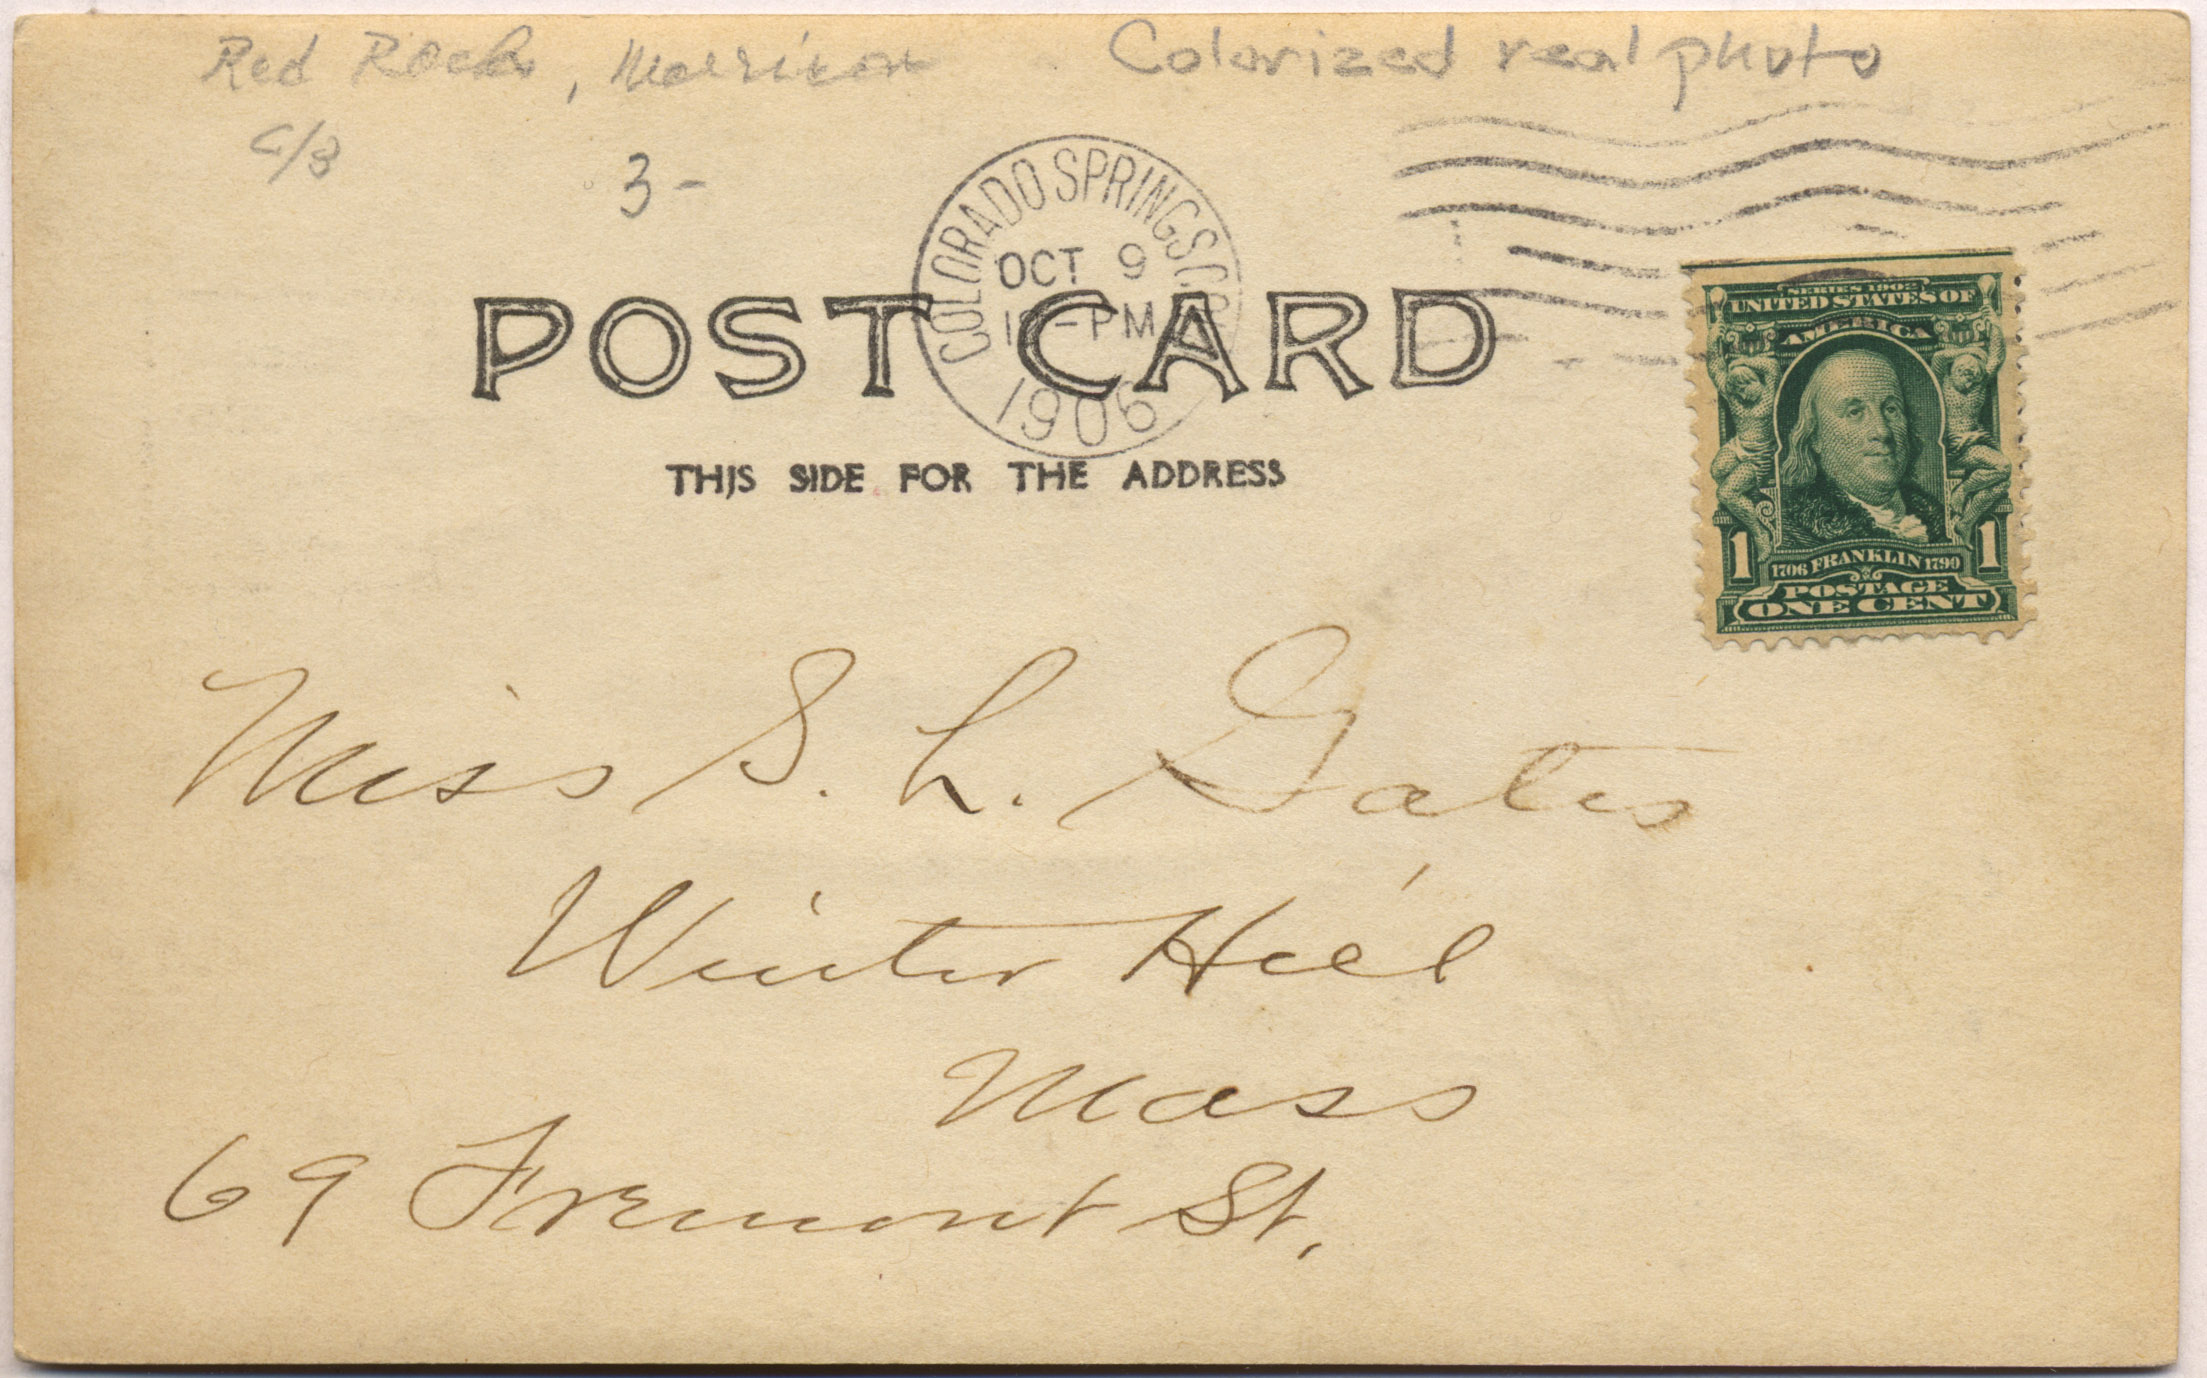 Red Rocks, Morrison Colorized real photo
C/3 3-
COLORADO SPRINGS
OCT 9
-PM
1906
POST CARD
THIS SIDE FOR THE ADDRESS
SERIES 1902
UNITED STATES OF
AMERICA
1 1706 FRANKLIN 1790 1
POSTAGE
ONE CENT
Miss S. L. Gates
Winter Hill
Mass
69 Fremont St.